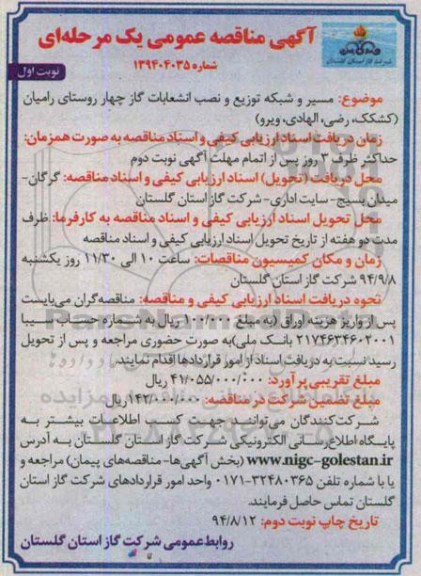 آگهی مناقصه عمومی یک مرحله‌ای
شماره ۱۳۹۴۰۴۰۳۵
شرکت گاز استان گلستان
نوبت اول
موضوع: مسیر و شبکه توزیع و نصب انشعابات گاز چهار روستای رامیان
(کشکک، رضی، الهادی، ویرو)
زمان دریافت اسناد ارزیابی کیفی و اسناد مناقصه به صورت همزمان:
حداکثر ظرف ۳ روز پس از اتمام مهلت آگهی نوبت دوم
محل دریافت (تحویل) اسناد ارزیابی کیفی و اسناد مناقصه: گرگان-
میدان بسیج- سایت اداری- شرکت گاز استان گلستان
محل تحویل اسناد ارزیابی کیفی و اسناد مناقصه به کارفرما: ظرف
مدت دو هفته از تاریخ تحویل اسناد ارزیابی کیفی و اسناد مناقصه
زمان و مکان کمیسیون مناقصات: ساعت ۱۰ الی ۱۱/۳۰ روز یکشنبه
۹۴/۹/۸ شرکت گاز استان گلستان
نحوه دریافت اسناد ارزیابی کیفی و مناقصه: مناقصه‌گران می‌بایست
پس از واریز هزینه اوراق (به مبلغ ۱۰۰/۰۰۰ ریال به شماره حساب سیبا
۲۱۷۴۶۳۴۶۰۲۰۰۱ بانک ملی) به صورت حضوری مراجعه و پس از تحویل
رسید نسبت به دریافت اسناد از امور قراردادها اقدام نمایند.
مبلغ تقریبی برآورد: ۴۱/۰۵۵/۰۰۰/۰۰۰ ریال
مبلغ تضمین شرکت در مناقصه: ۱۴۲/۰۰۰/۰۰۰ ریال
شرکت‌کنندگان می‌توانند جهت کسب اطلاعات بیشتر به
پایگاه اطلاع‌رسانی الکترونیکی شرکت گاز استان گلستان به آدرس
www.nigc-golestan.ir (بخش آگهی‌ها- مناقصه‌های پیمان) مراجعه و
یا با شماره تلفن ۳۲۴۸۰۳۶۵-۰۱۷۱ واحد امور قراردادهای شرکت گاز استان
گلستان تماس حاصل فرمایند.
تاریخ چاپ نوبت دوم: ۹۴/۸/۱۲
روابط عمومی شرکت گاز استان گلستان